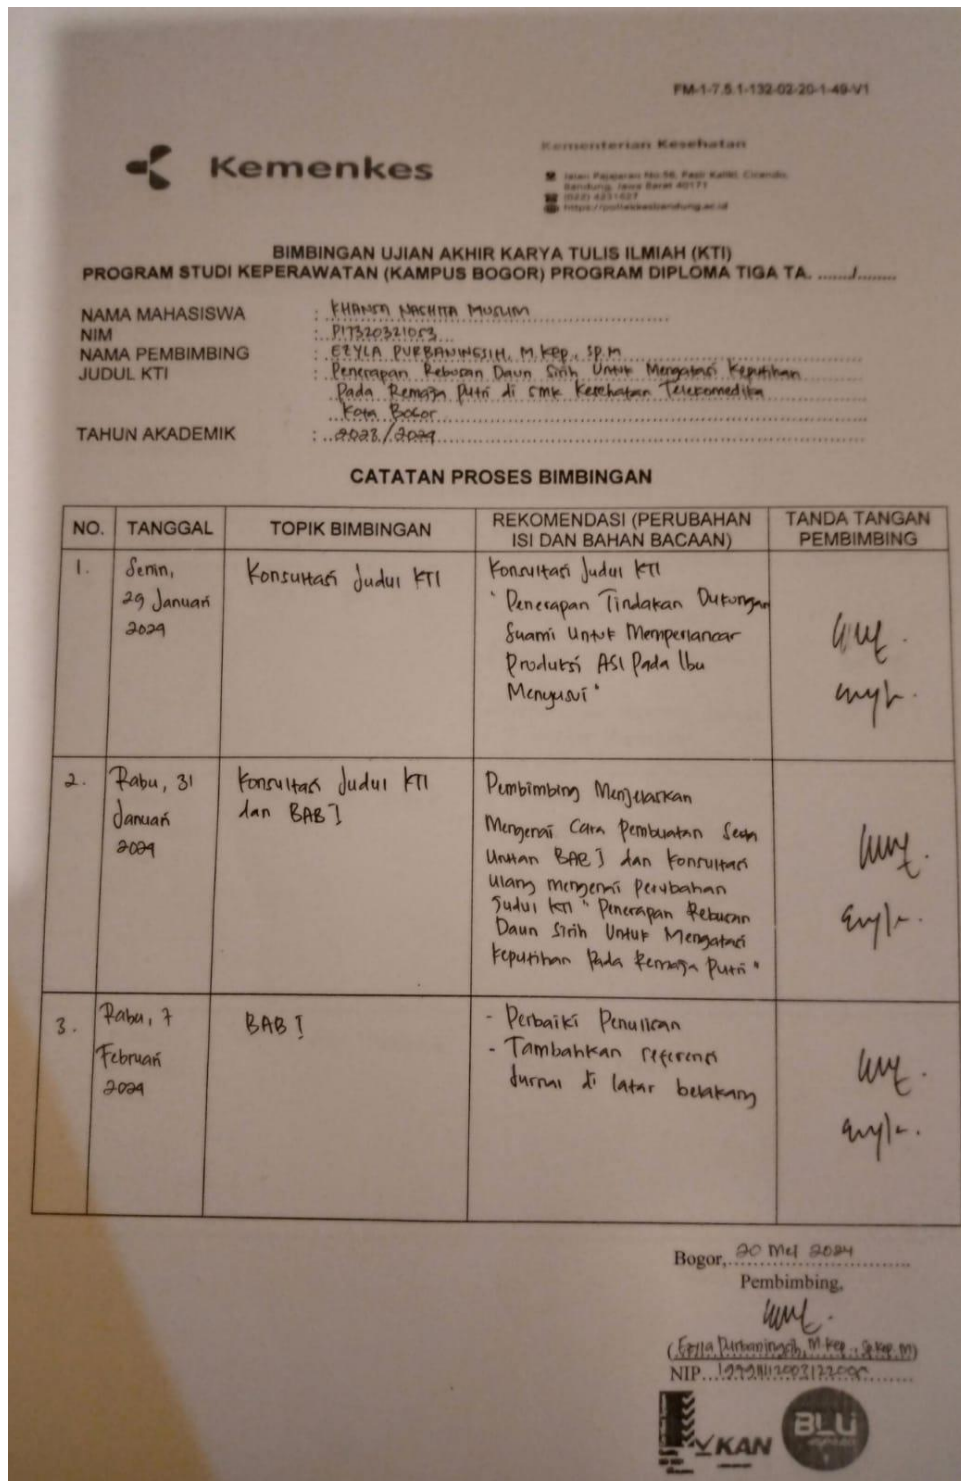 FM-1-7.5.1-132-02-20-1-49-V1
Kemenkes
Kementerian Kesehatan
Jalan Pajajaran No.56, Pasir Kaliki, Cicendo,
Bandung, Jawa Barat 40171
(022) 4231627
https://poltekkesbandung.ac.id
BIMBINGAN UJIAN AKHIR KARYA TULIS ILMIAH (KTI)
PROGRAM STUDI KEPERAWATAN (KAMPUS BOGOR) PROGRAM DIPLOMA TIGA TA. ......../........
NAMA MAHASISWA : KHANSA NACHITA MUSLIM
NIM : P17320321053
NAMA PEMBIMBING : EZYLA PURBANINGSIH, M.Kep., SP.M
JUDUL KTI : Penerapan Rebusan Daun Sirih Untuk Mengatasi Keputihan
Pada Remaja Putri di SMK Kesehatan Telekomedika
Kota Bogor
TAHUN AKADEMIK : 2023/2024
CATATAN PROSES BIMBINGAN
NO. TANGGAL TOPIK BIMBINGAN REKOMENDASI (PERUBAHAN ISI DAN BAHAN BACAAN) TANDA TANGAN PEMBIMBING
1. Senin, 29 Januari 2024
Konsultasi Judul KTI
Konsultasi Judul KTI
" Penerapan Tindakan Dukungan
Suami Untuk Memperlancar
Produksi ASI Pada Ibu
Menyusui "
2. Rabu, 31 Januari 2024
Konsultasi Judul KTI
dan BAB I
Pembimbing Menjelaskan
Mengenai Cara Pembuatan Serta
Urutan BAB I dan Konsultasi
ulang mengenai Perubahan
Judul KTI " Penerapan Rebusan
Daun Sirih Untuk Mengatasi
Keputihan Pada Remaja Putri "
3. Rabu, 7 Februari 2024
BAB I
- Perbaiki Penulisan
- Tambahkan referensi
Jurnal di latar belakang
Bogor, 20 Mei 2024
Pembimbing,
(Ezyla Purbaningsih, M.Kep., Sp.Kep.M)
NIP.
KAN
BLU